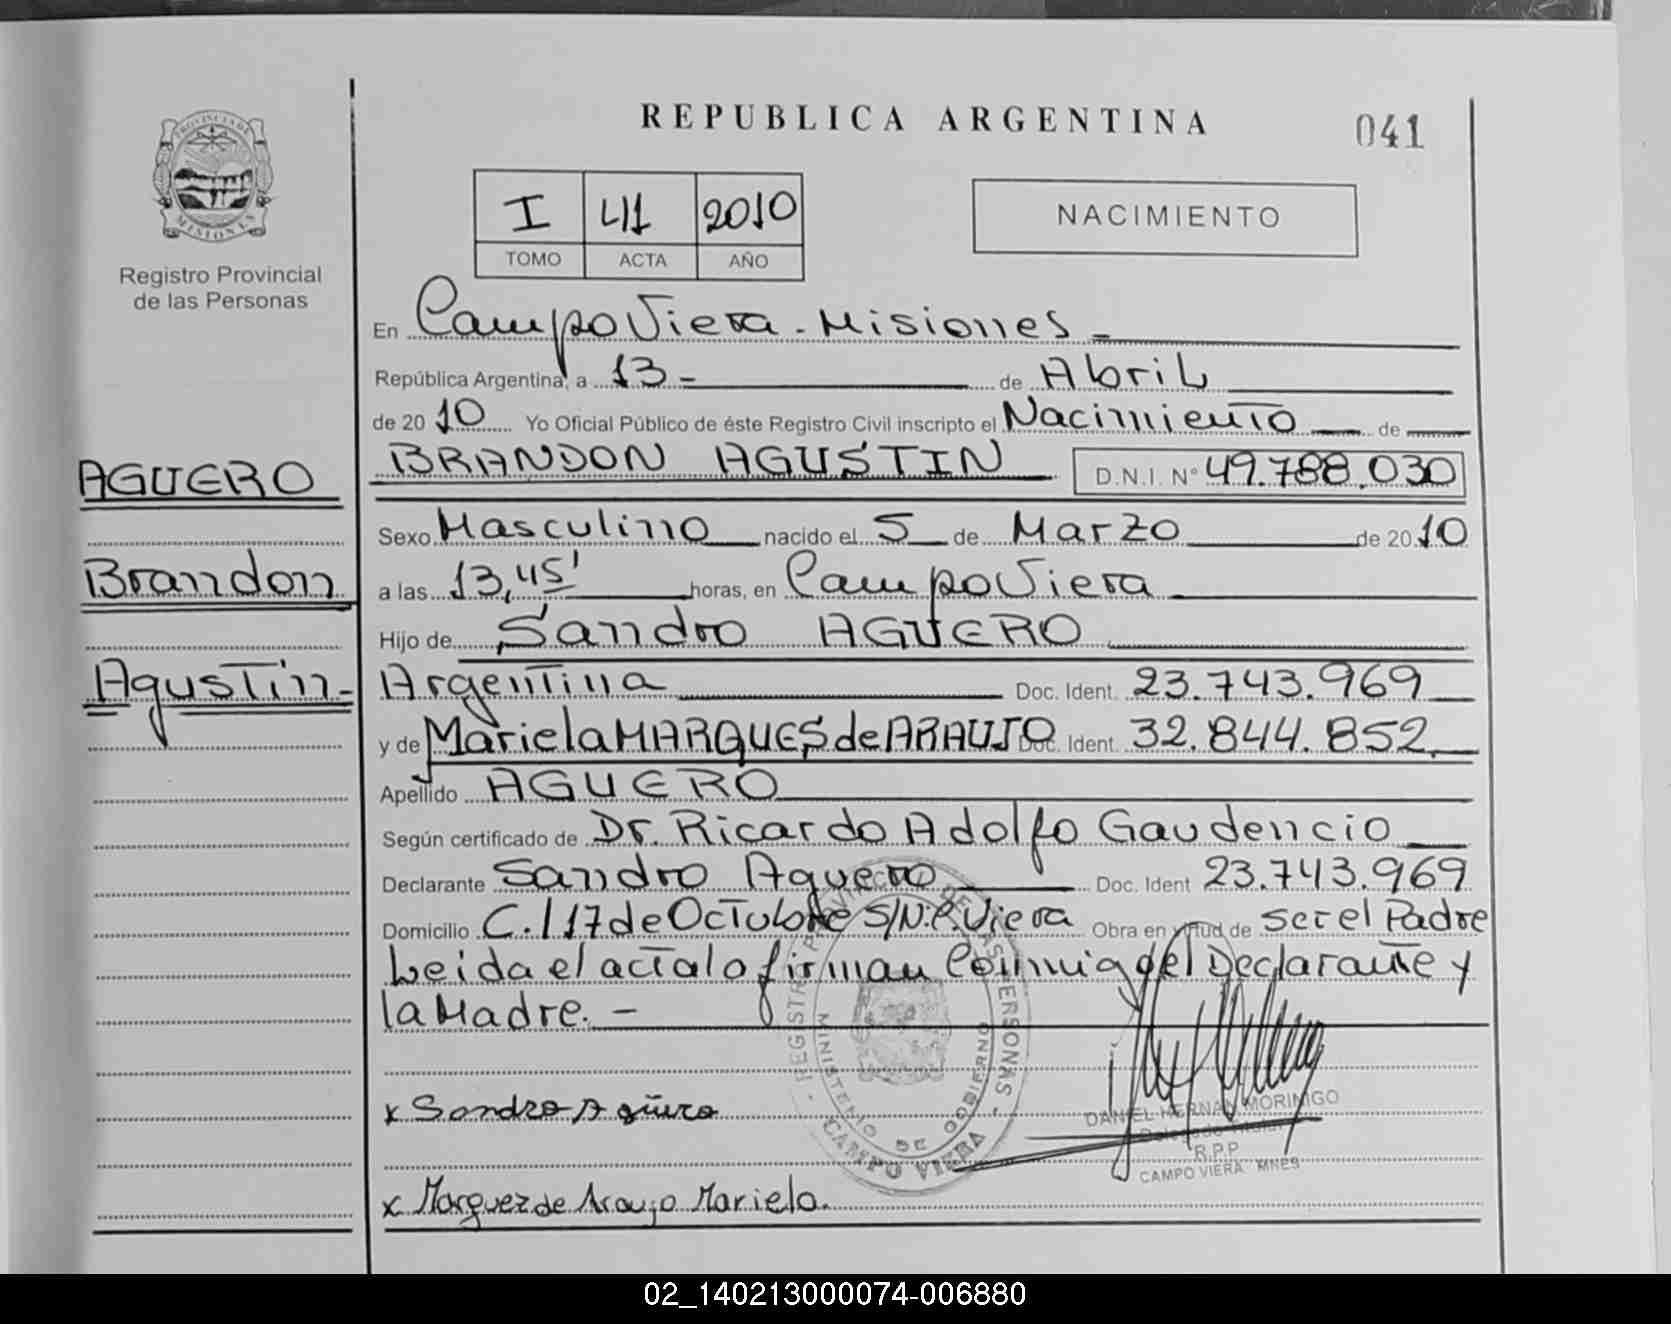 REPUBLICA ARGENTINA
041
PROVINCIA DE MISIONES
Registro Provincial
de las Personas
I 41 2010
TOMO ACTA AÑO
NACIMIENTO
En Campo Viera - Misiones -
República Argentina, a 13 - de Abril
de 2010 Yo Oficial Público de éste Registro Civil inscripto el Nacimiento de
BRANDON AGUSTIN D.N.I. Nº 49.788.030
AGUERO
Brandon
Agustin -
Sexo Masculino nacido el 5 de Marzo de 2010
a las 13,45' horas, en Campo Viera
Hijo de Sandro AGUERO
Argentina Doc. Ident. 23.743.969
y de Mariela MARQUES de ARAUJO Doc. Ident. 32.844.852.
Apellido AGUERO
Según certificado de Dr. Ricardo Adolfo Gaudencio
Declarante Sandro Aguero Doc. Ident 23.743.969
Domicilio C. / 17 de Octubre S/N. C. Viera Obra en virtud de ser el Padre
Leida el acta la firman Conmigo el Declarante y
la Madre. -
REGISTRO PROVINCIAL DE LAS PERSONAS -
MINISTERIO DE GOBIERNO
- CAMPO VIERA -
x Sandro Agüero
DANIEL HERNAN MORINIGO
Delegado Titular
R.P.P
CAMPO VIERA MNES
x Marquez de Araujo Mariela.
02_140213000074-006880